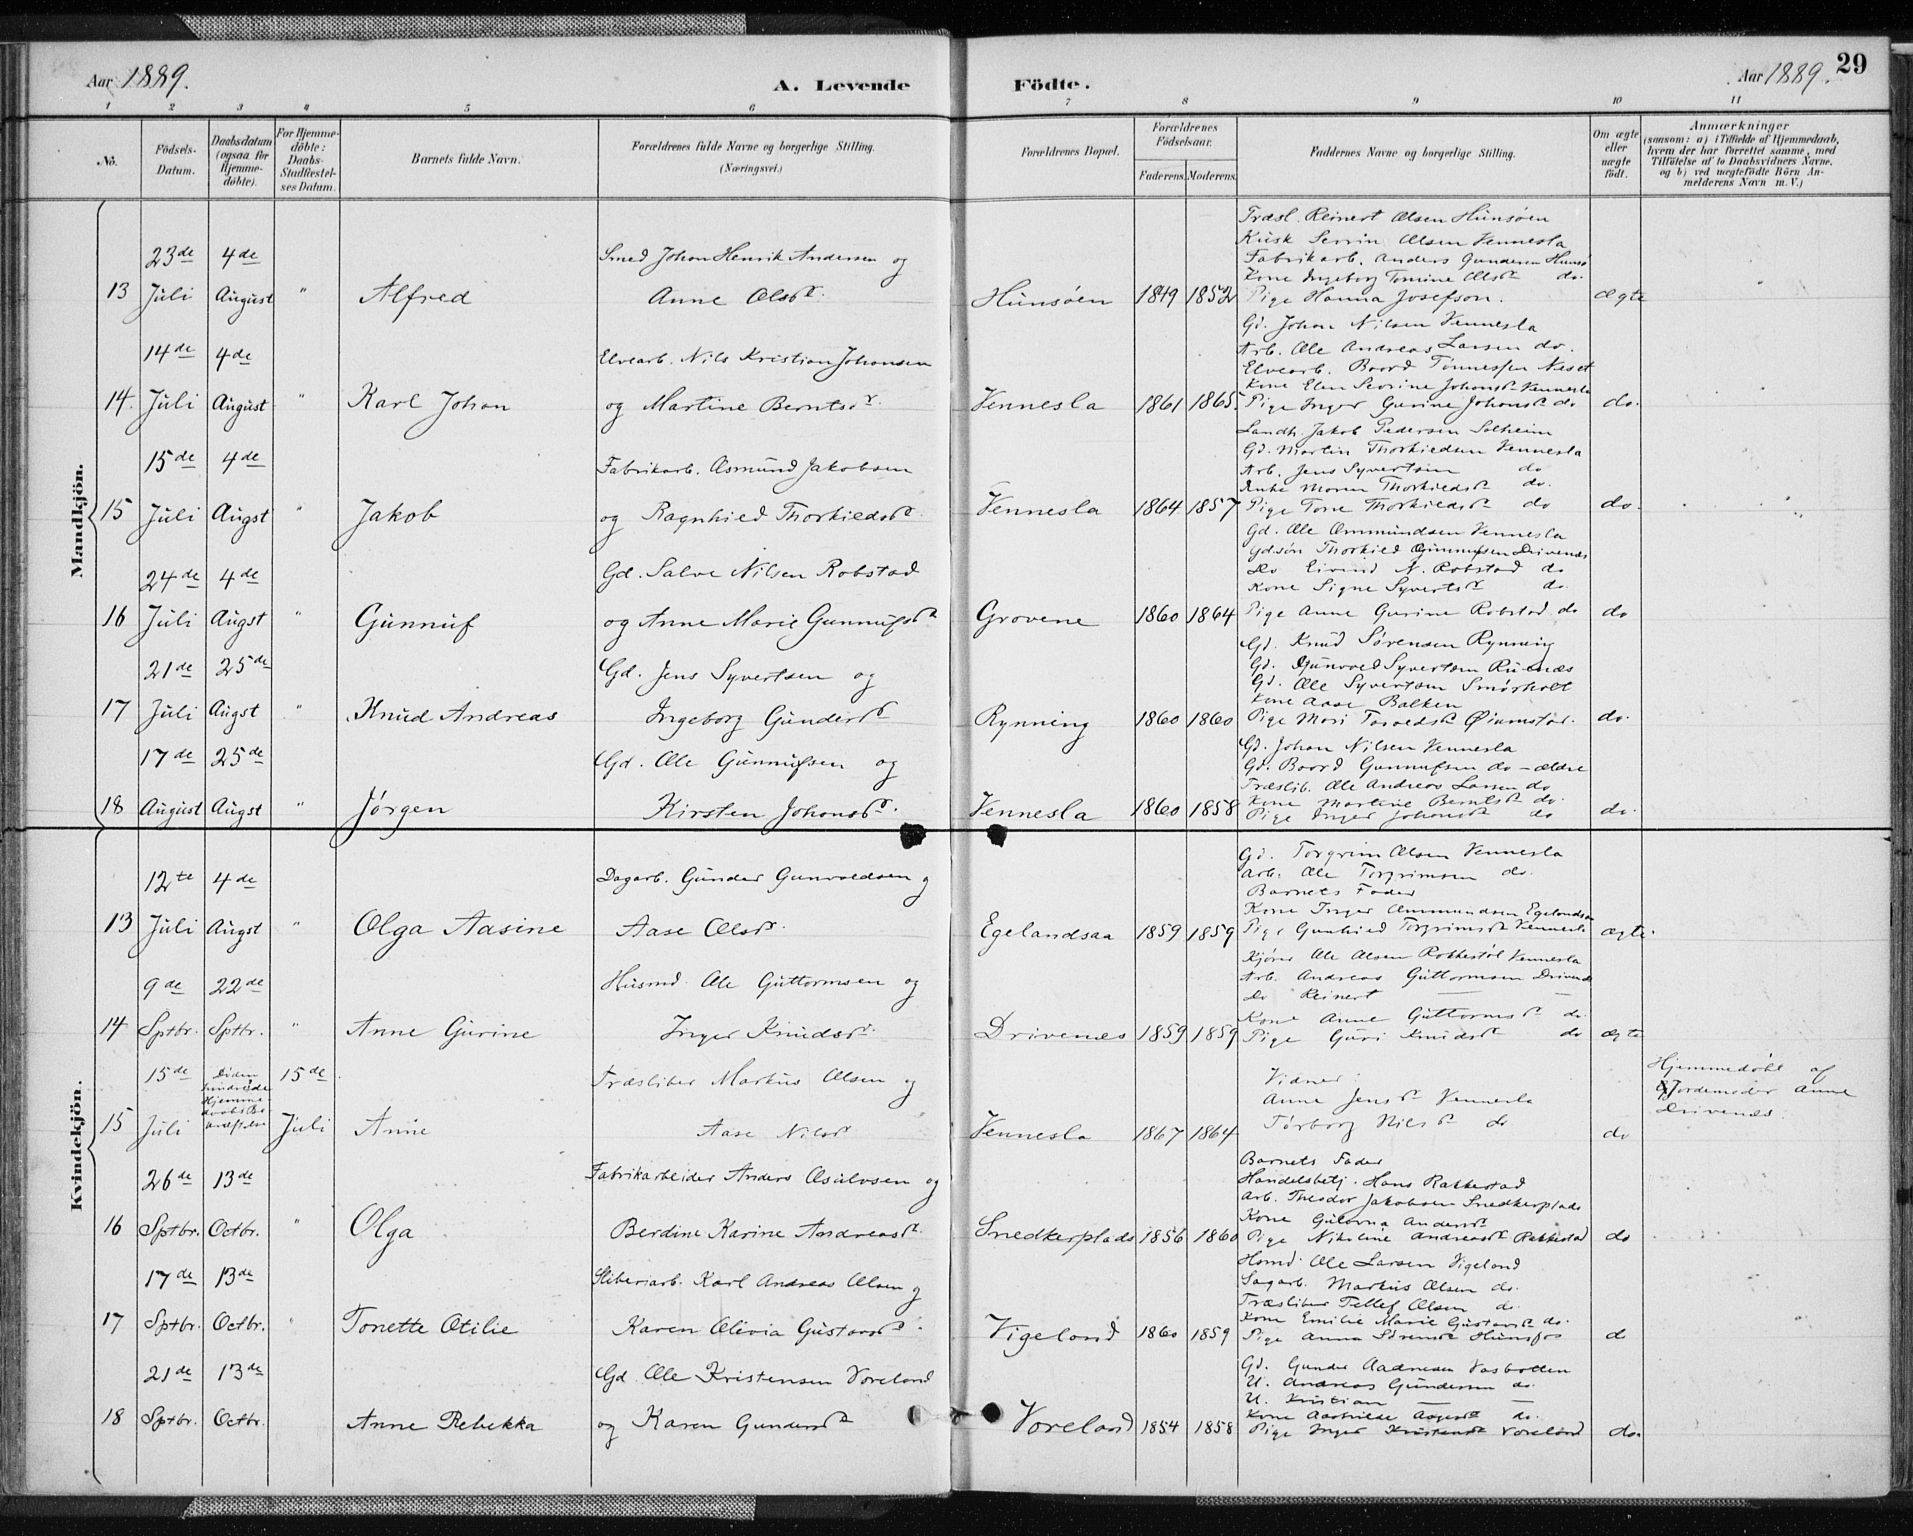 Aar 1889.
A. Levende
Fødte.
Aar 1889.
29
1 2 3 4 5 6 7 8 9 10 11
No.
Födsels-Datum.
Daabsdatum (ogsaa for Hjemme-döbte).
For Hjemme-döbte: Daabs-Stadfæstel-ses Datum.
Barnets fulde Navn.
Forældrenes fulde Navne og borgerlige Stilling. (Næringsvei.)
Forældrenes Bopæl.
Forældrenes Födselsaar.
Faderens. Moderens.
Faddernes Navne og borgerlige Stilling.
Om ægte eller uægte födt.
Anmærkninger
(saasom: a) i Tilfælde af Hjemmedaab,
hvem der har forrettet samme, med
Tilföielse af to Daabsvidners Navne,
og b) ved uægtefödte Börn An-
melderens Navn m. V.)
Mandkjön.
13 23de Juli 4de August " Alfred
Smed Johan Henrik Andersen og
Anne Olsdr.
Hunsøen 1849 1852
Træsl. Reinert Olsen Hunsøen
Kusk Servin Olsen Vennesla
Fabrikarb. Anders Gundersen Hunsø
Kone Ingeborg Tomine Olsdr do.
Pige Hanna Josefson.
ægte
14. 14de Juli 4de August " Karl Johan
Elvearb. Nils Kristian Johansen
og Martine Berntsdr.
Vennesla 1861 1865.
Gd. Johan Nilsen Vennesla
Arb. Ole Andreas Larsen do.
Elvearb. Baard Tønnessen Neset
Kone Elen Serine Johansdr Vennesla
Pige Inger Gurine Johansdr do
do.
15 15de Juli 4de Augst " Jakob
Fabrikarb. Asmund Jakobsen
og Ragnhied Thorkiedsdr.
Vennesla 1864 1857
Landh. Jakob Pedersen Solheim
Gd. Martin Thorkiedsen Vennesla
Arb. Jens Syvertsen do
Enke Maren Thorkiedsdr do.
Pige Tone Thorkiedsdr do
do.
16 24de Juli 4de Augst " Gunnuf
Gd. Salve Nilsen Robstad
og Anne Marie Gunnufsdr
Grovene 1860 1864
Gd. Ole Ommundsen Vennesla
Gdsøn Thorkied Gunnufsen Drivenæs
Do Eivind N. Robstad do
Kone Signe Syvertsdr do.
Pige Anne Gurine Robstad do
do
17 21de Juli 25de Augst " Knud Andreas
Gd. Jens Syvertsen og
Ingeborg Gundersdr
Rynning 1860 1860
Gd. Knud Sørensen Rynning
Gd. Gunvoed Syvertsen Ruenæs
Gd. Ole Syvertsen Smørholt
Kone Aase Balken
Pige Mari
do.
18 17de August 25de Augst " Jørgen
Gd. Ole Gunnufsen og
Kirsten Johansdr.
Vennesla 1860 1858
Gd. Johan Nilsen Vennesla
Gd. Baard Gunnufsen do - ældre
Træslib. Ole Andreas Larsen do
Kone Martine Berntsdr do.
Pige Inger Johansdr do
do.
Kvindekjön.
13 12te Juli 4de Augst " Olga Aasine
Dagarb. Gunder Gunvaldsen og
Aase Olsdr.
Egelandsaa 1859 1859
Gd. Torgrim Olsen Vennesla
Arb. Ole Torgrimsen do.
Barnets Fader
Kone Inger Ommundsen Egelandsaa
Pige Gunhied Torgrimsdr Vennesla
ægte.
14 9de Sptbr. 22de Sptbr. " Anne Gurine
Husmd. Ole Guttormsen og
Inger Knudsdr.
Drivenæs 1859 1859
Kjører Ole Olsen Rokkestøl Vennesla
Arb. Andreas Guttormsen Drivenæs
Do Reinert — —
Kone Anne Guttormsdr do.
Pige Guri Knudsdr do
ægte
15 15de Juli
Hjemme-
15de Juli Anne
Træsliber Markus Olsen og
Aase Nilsdr
Vennesla 1867 1864
Vidner:
Anne Jensdr Vennesla
Tørborg Nilsdr do
do
Hjemmedøbt af
Gjordemoder Anne
Drivenæs.
16 26de Sptbr. 13de Octbr. " Olga
Fabrikarbeider Anders Osulvsen og
Berdine Karine Andreasdr.
Snedkerplads 1856 1860
Barnets Fader
Handelsbetj. Hans Rakkestad
Arb. Theodor Jakobsen Snedkerplads
Kone Gulovna Andersdr
Pige Nikoline Andreasdr Rakkestad
do
17 17de Sptbr. 13de Octbr. " Tonette Otilie
Sliberiarb. Karl Andreas Olsen og
Karen Olivia Gustavsdr.
Vigeland 1860 1859
Hsmd. Ole Larsen Vigeland
Sagarb. Markus Olsen do.
Træsliber Tellef Olsen do.
Kone Emilie Marie Gustavsdr do.
Pige Anna Hunsfos
do
18 21de Sptbr. 13de Octbr. Anne Rebekka
Gd. Ole Kristensen Voreland
og Karen Gundersdr
Voreland 1854 1858
Gd. Gunder Aadnesen Vasbotten
U. Andreas Gundersen do.
U. Kristian — —
Kone Aashilde Aagesdr do.
Pige Inger Kristensdr Voreland
do.